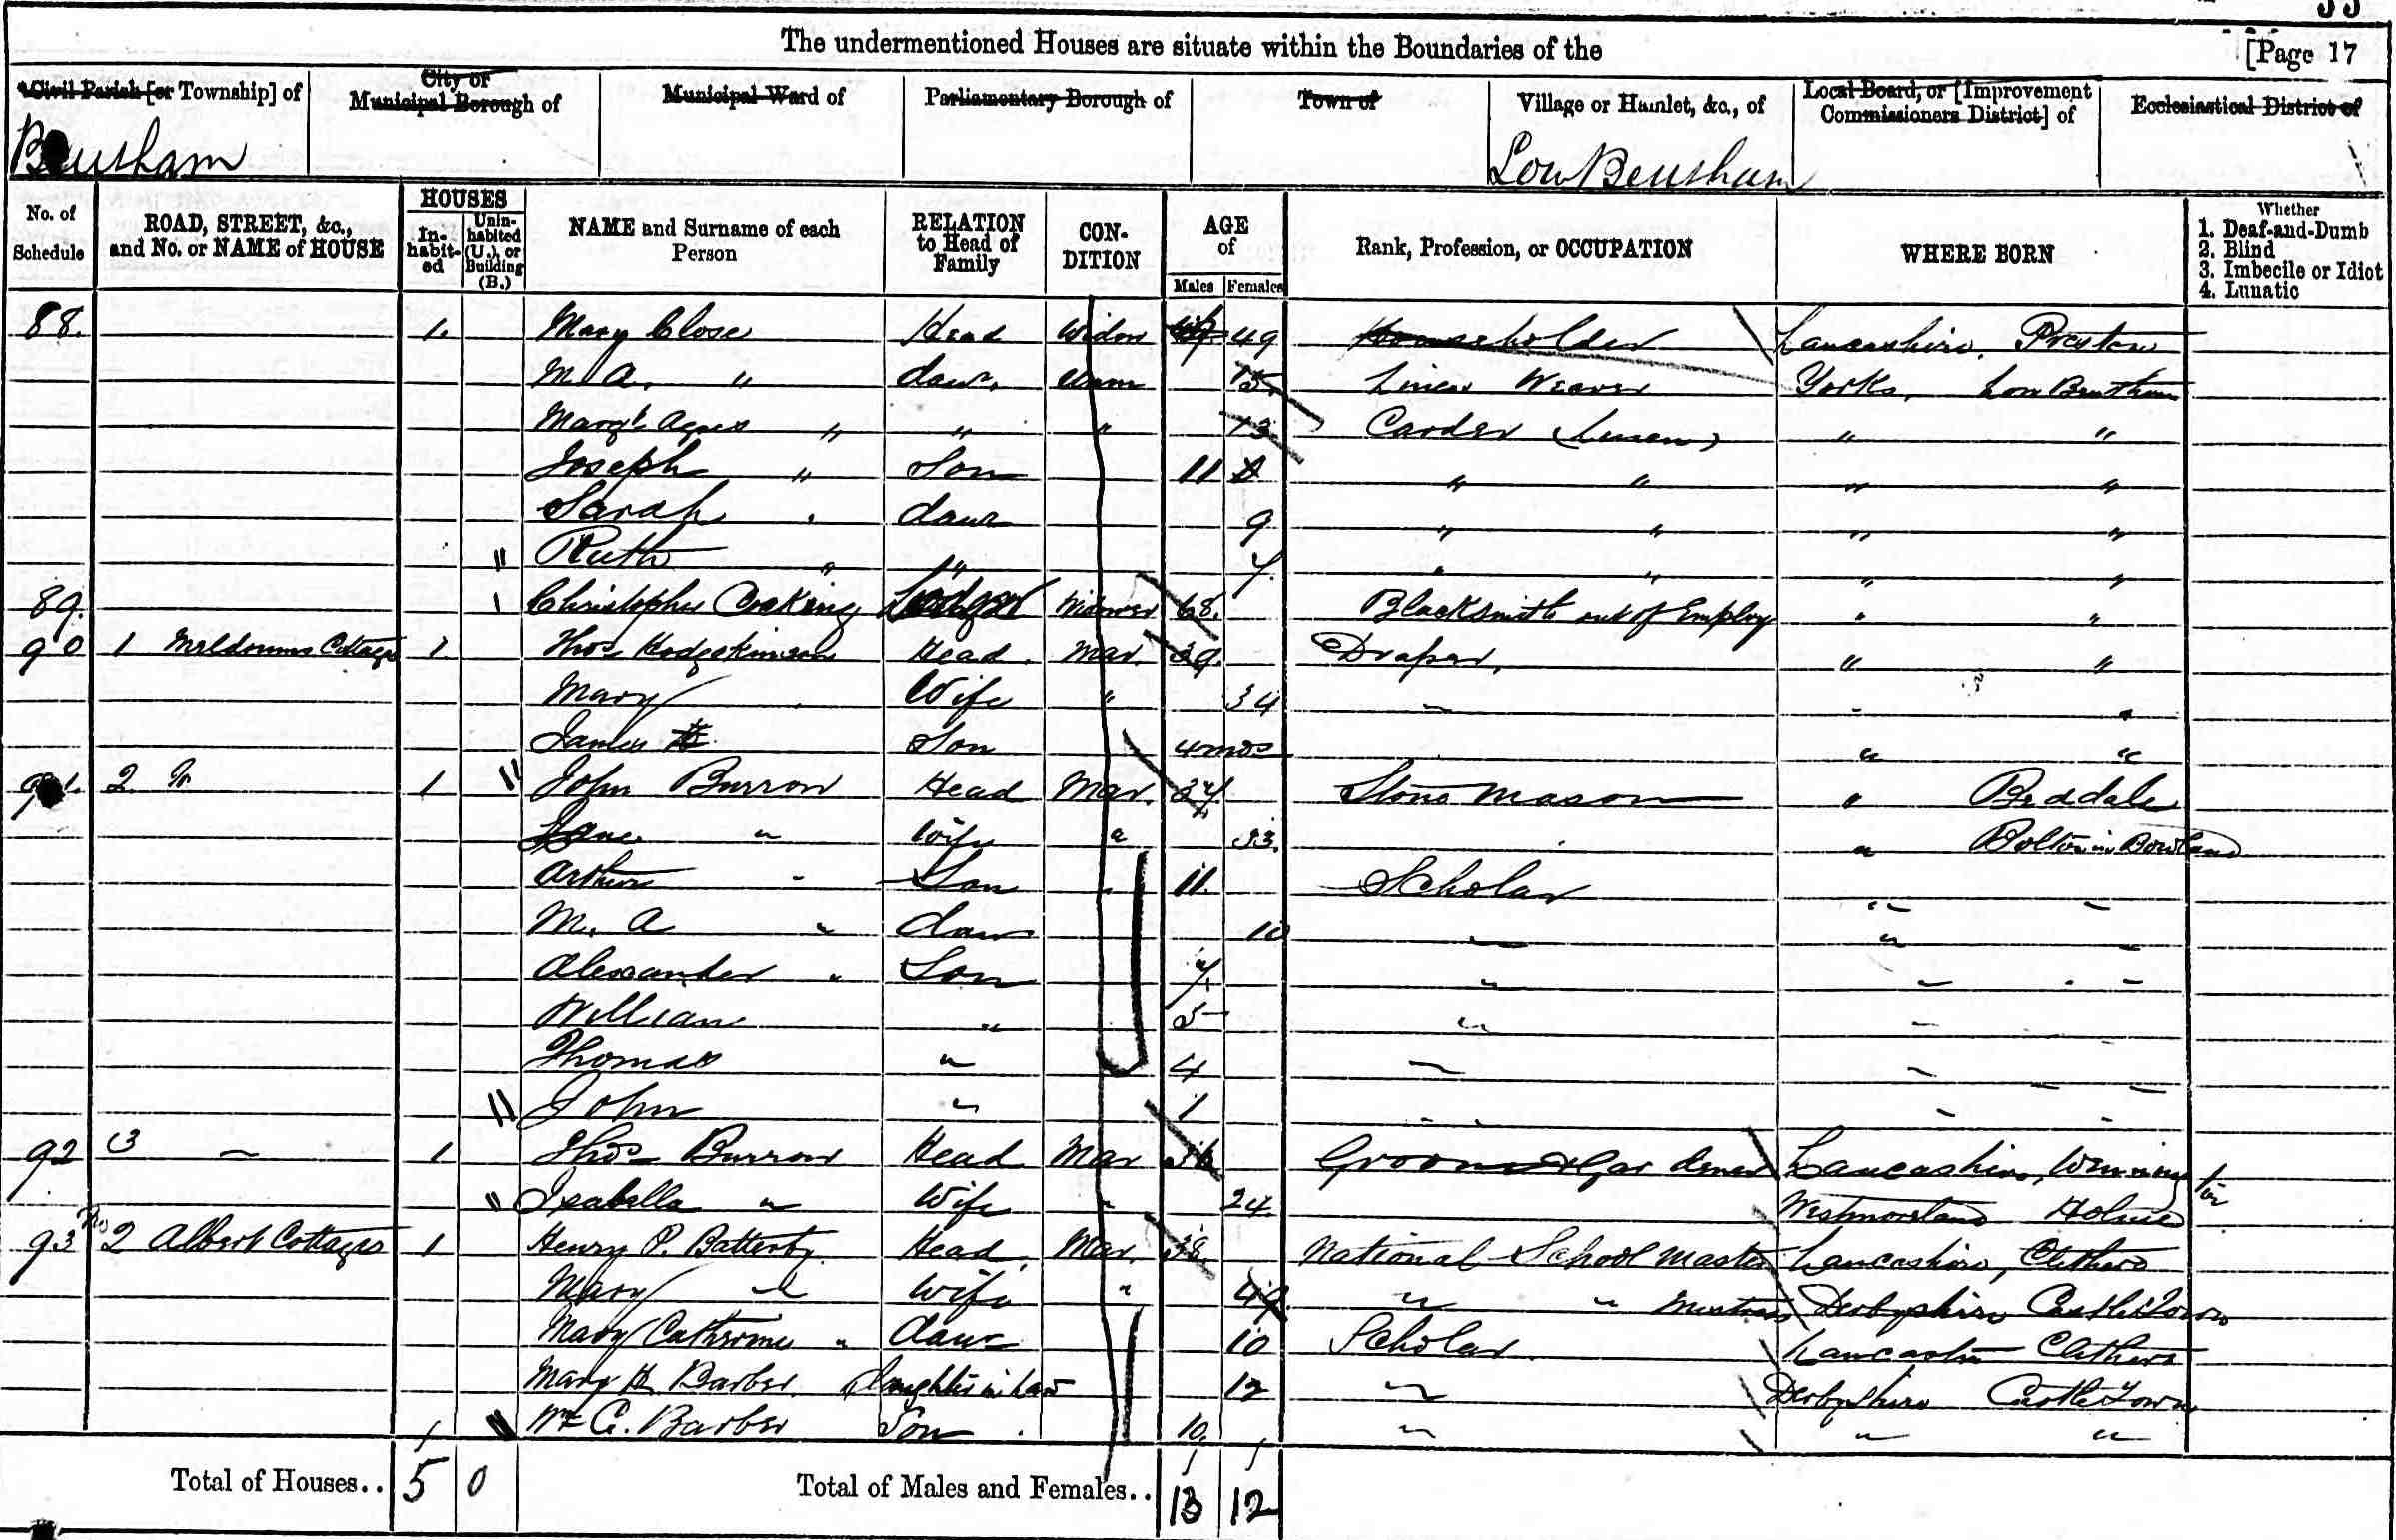 33
The undermentioned Houses are situate within the Boundaries of the [Page 17
Civil Parish [or Township] of City or Municipal Borough of Municipal Ward of Parliamentary Borough of Town of Village or Hamlet, &c., of Local Board, or [Improvement Commissioners District] of Ecclesiastical District of
Bentham Low Bentham
No. of Schedule ROAD, STREET, &c., and No. or NAME of HOUSE HOUSES Inhabited Uninhabited (U.), or Building (B.) NAME and Surname of each Person RELATION to Head of Family CONDITION AGE of Males Females Rank, Profession, or OCCUPATION WHERE BORN Whether 1. Deaf-and-Dumb 2. Blind 3. Imbecile or Idiot 4. Lunatic
88. 1. Mary Close Head Widow 49 Householder Lancashire, Preston
M. A. " daur. Unm 15 Linen Weaver Yorks, Low Bentham
Margt Agnes " " " 13 Carder (Linen) " "
Joseph " Son 11 " " " "
Sarah " daur 9 " " " "
Ruth " " 7 " " " "
89. Christopher Cocking Lodger Widower 68. Blacksmith out of Employ " "
90 1 Cottages 1 Thos Hodgskinson Head Mar. 39. Draper, " "
Mary Wife " 34 " "
James Son 4mos " "
91. 2 1 John Burrow Head Mar. Stone Mason "
Jane " Wife " 33. " Bolton in Bowland
Arthur " Son 11. Scholar " "
M. A " daur 10 " " "
Alexander " Son 7 " " "
William " 5 " "
Thomas " 4 " "
John " 1 " "
92 3 " 1 Thos Burrow Head Mar Groom & Gardener Lancashire, Wennington
Isabella " Wife " 24. Westmoreland Holme
93 No 2 Albert Cottages 1 Henry P. Battersby Head Mar. 38. National School Master Lancashire, Clithero
Mary " Wife " " " Mistress Derbyshire Castletown
Mary Catherine " daur 10 Scholar Lancashire Clithero
Mary H Barber Daughter in Law 12 " Derbyshire Castletown
Wm G. Barber Son 10. " " "
Total of Houses.. 5 0 Total of Males and Females.. 13 12